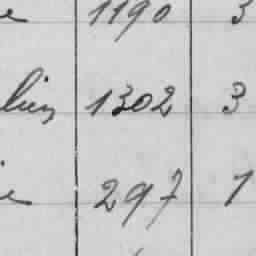 1190 3
1302 3
297 1